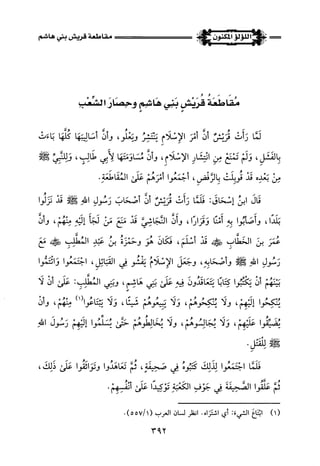 اللؤلؤ المكنون
مقاطعة قريش بني هاشم
مُقَاطَعَةُ قُرَيْشٍ بَنِي هَاشِمٍ وحِصَارُ الشِّعْبِ
لَمَّا رَأَتْ قُرَيْشٌ أنَّ أمْرَ الإِسْلَامِ يَنْتَشِرُ ويَعْلُو، وأنَّ أسَالِيبَهَا كُلَّهَا بَاءَتْ
بِالفَشَلِ، وَلَمْ تَمْنَعْ مِنِ انْتِشَارِ الإِسْلَامِ، وأنَّ مُسَاوَمَتَهَا لِأَبِي طَالِبٍ، وَلِلنَّبِيِّ ﷺ
مِن بَعْدِهِ قَدْ قُوبِلَتْ بِالرَّفْضِ، اجْمَعُوا أمْرَهُمْ عَلَى المُقَاطَعَةِ.
قَالَ ابنُ إِسْحَاقَ: فَلَمَّا رَأَتْ قُرَيْشٌ أنَّ أصْحَابَ رَسُولِ اللهِ ﷺ قَدْ نَزَلُوا
بَلَدًا، وأصَابُوا بِهِ أمْنًا وَقَرَارًا، وأنَّ النَّجَاشِيَّ قَدْ مَنَعَ مَنْ لَجَأَ إِلَيْهِ مِنْهُمْ، وأنَّ
عُمَرَ بنَ الخَطَّابِ ﷺ قَدْ أسْلَمَ، فَكَانَ هُوَ وحَمْزَةُ بنُ عَبْدِ المُطَّلِبِ ﷺ مَعَ
رَسُولِ اللهِ ﷺ وأصْحَابِهِ، وجَعَلَ الإِسْلَامُ يَفْشُو فِي القَبَائِلِ، اجْتَمَعُوا وَائْتَمُوا
بَيْنَهُمْ أنْ يَكْتُبُوا كِتَابًا يَتَعَاقَدُونَ فِيهِ عَلَى بَنِي هَاشِمٍ، وبَنِي المُطَّلِبِ: عَلَى أنْ لَا
يُنْكِحُوا إِلَيْهِمْ، ولَا يُنْكِحُوهُمْ، وَلَا يَبِيعُوهُمْ شَيْئًا، وَلَا يَبْتَاعُوا(١) مِنْهُمْ، وَأنْ
يُضَيِّقُوا عَلَيْهِمْ، وَلَا يُجَالِسُوهُمْ، ولَا يُخَالِطُوهُمْ حَتَّى يُسَلِّمُوا إِلَيْهِمْ رَسُولَ اللهِ
ﷺ لِلْقَتْلِ.
فَلَمَّا اجْتَمَعُوا لِذَلِكَ كَتَبُوهُ فِي صَحِيفَةٍ، ثُمَّ تَعَاهَدُوا وتَوَاثَقُوا عَلَى ذَلِكَ،
ثُمَّ عَلَّقُوا الصَّحِيفَةَ فِي جَوْفِ الكَعْبَةِ تَوْكِيدًا عَلَى أنْفُسِهِمْ.
(١) ابْتَاعَ الشيءَ: أي اشتَرَاه. انظر لسان العرب (١/٥٥٧).
٣٩٢